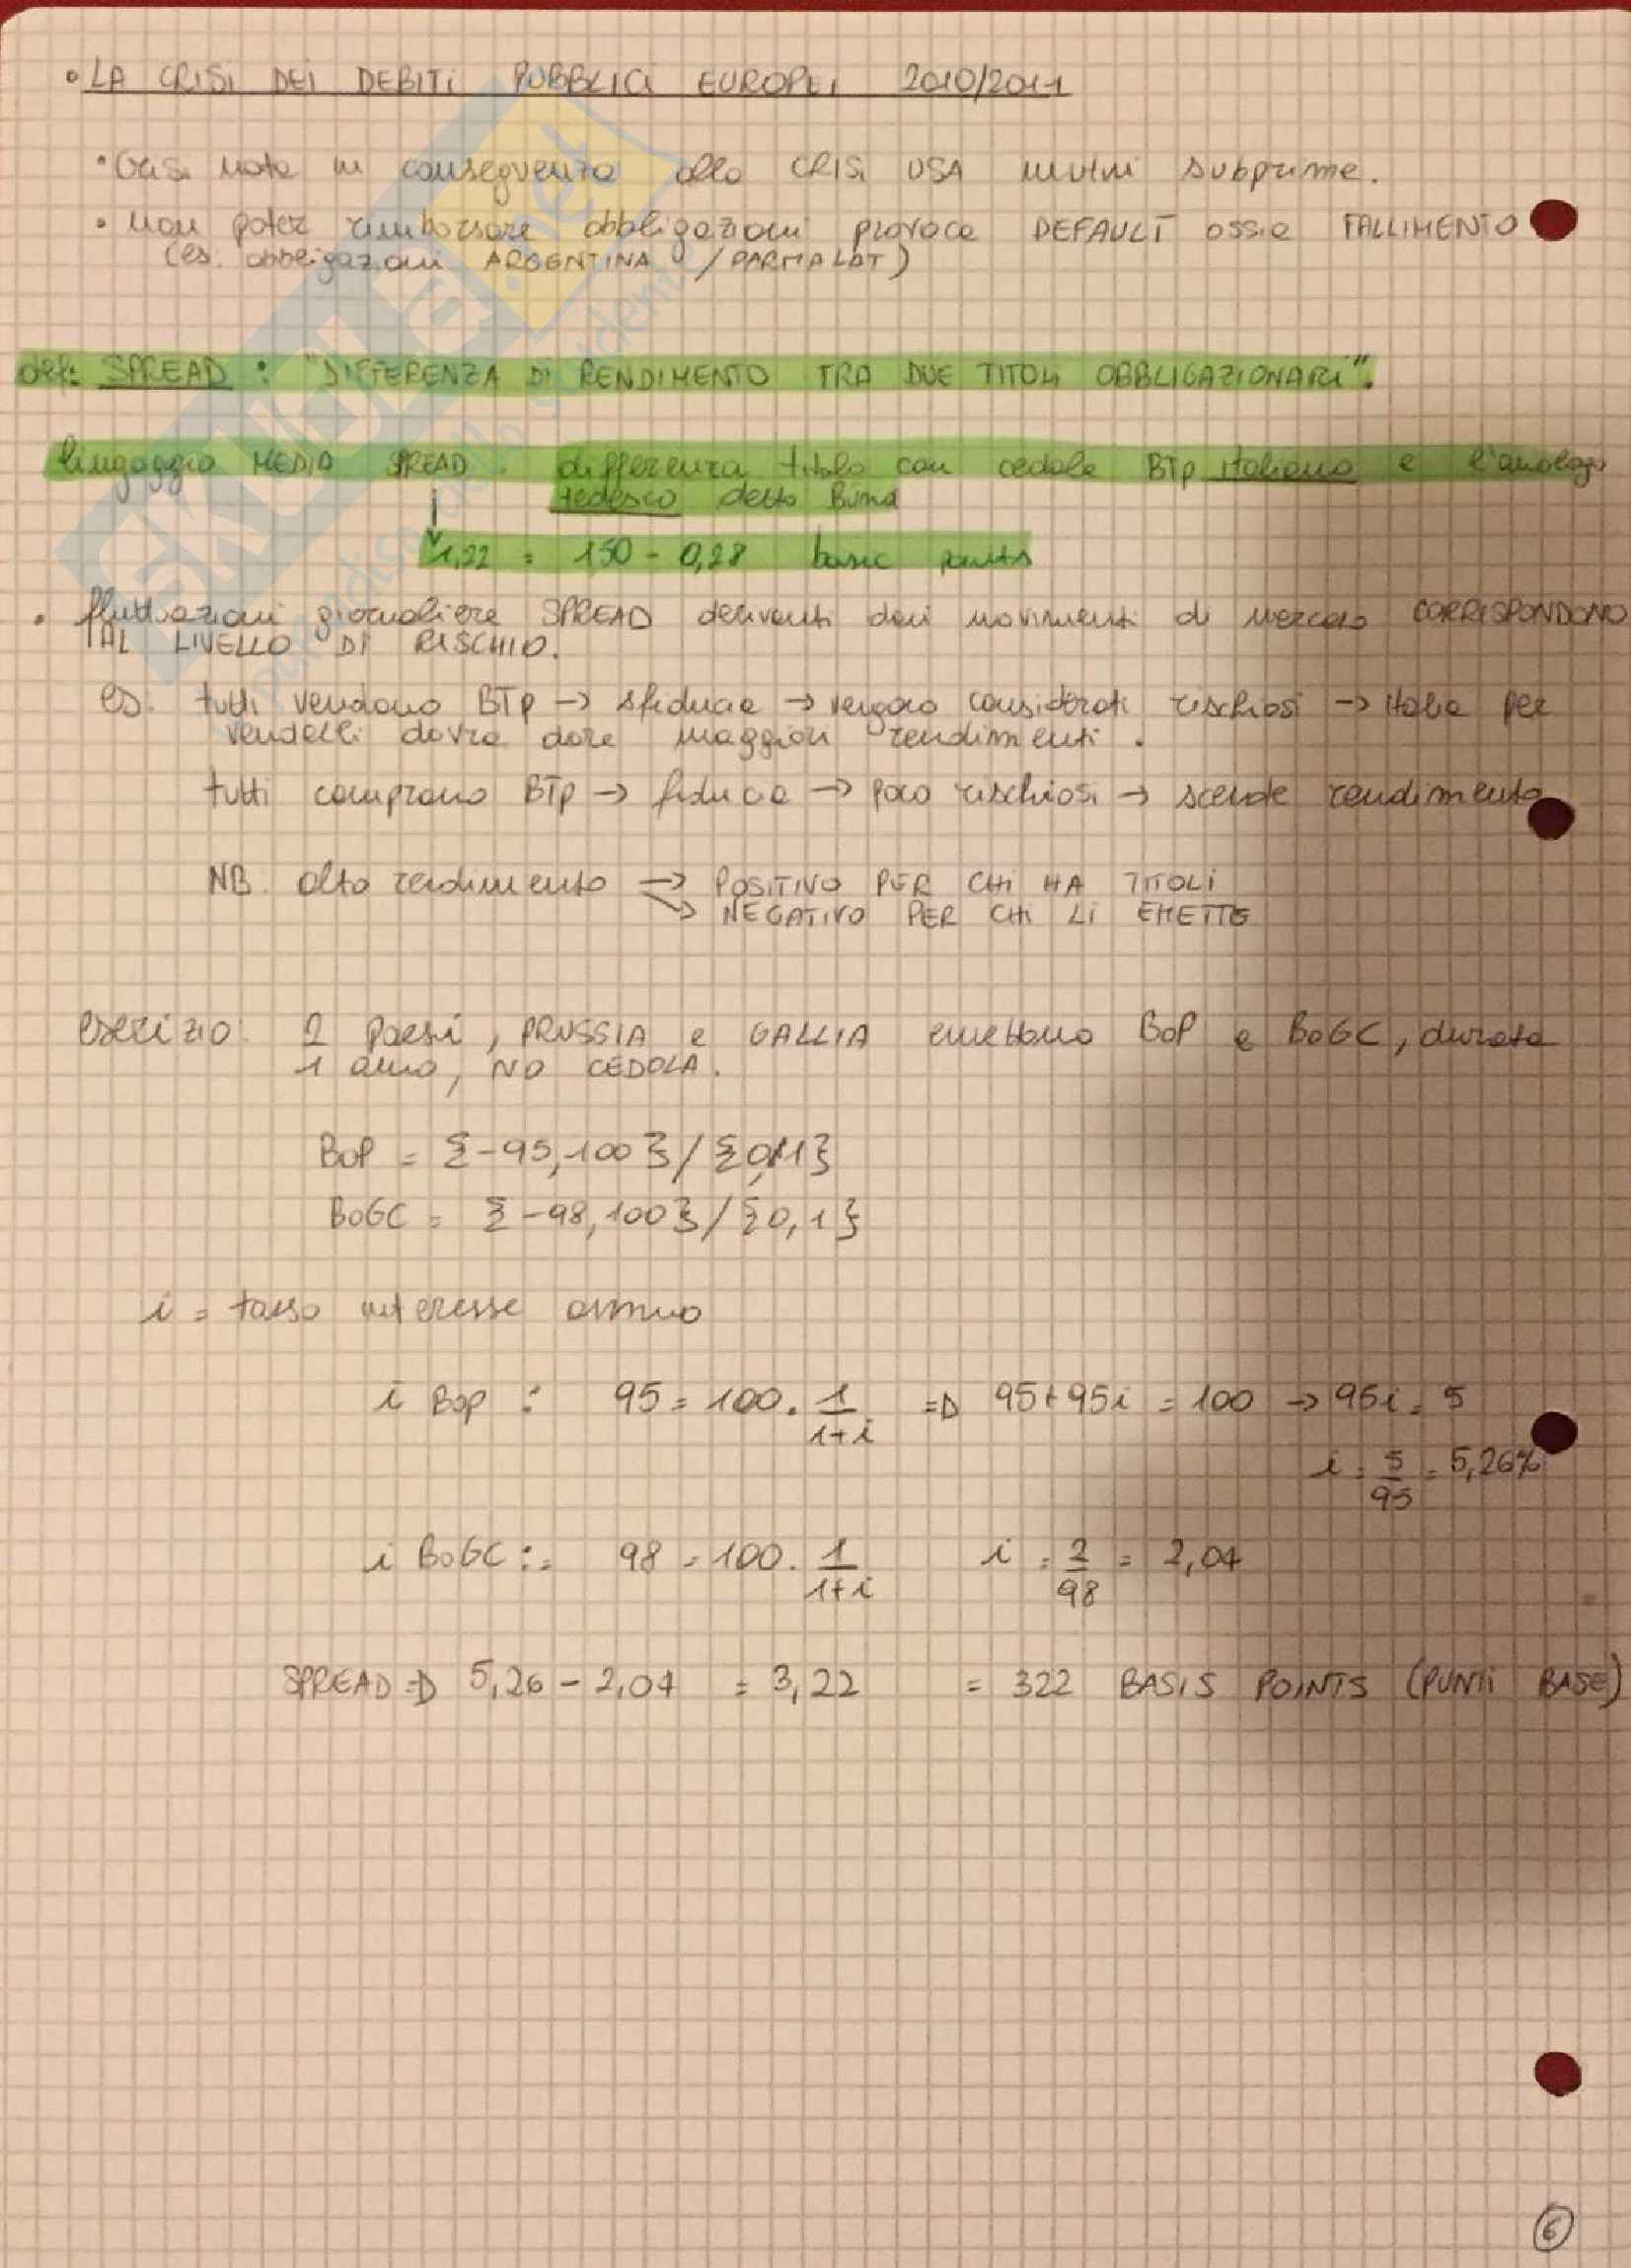 • LA CRISI DEI DEBITI PUBBLICI EUROPEI 2010/2011
• Crisi nata in conseguenza alla CRISI USA mutui subprime.
• non poter rimborsare obbligazioni provoca DEFAULT ossia FALLIMENTO
(es. obbligazioni ARGENTINA / PARMALAT)
def: SPREAD : "DIFFERENZA DI RENDIMENTO TRA DUE TITOLI OBBLIGAZIONARI".
linguaggio MEDIA SPREAD : differenza titolo con cedola BTp italiano e l'analogo
tedesco detto Bund
1,22 = 150 - 0,28 basic points
• fluttuazioni giornaliere SPREAD derivanti dai movimenti di mercato CORRISPONDONO
AL LIVELLO DI RISCHIO.
es: tutti vendono BTp → sfiducia → vengono considerati rischiosi → Italia per
venderli dovrà dare maggiori rendimenti.
tutti comprano BTp → fiducia → poco rischiosi → scende rendimento
NB. alto rendimento → POSITIVO PER CHI HA TITOLI
→ NEGATIVO PER CHI LI EMETTE
esercizio: 2 paesi, PRUSSIA e GALLIA emettono BoP e BoGC, durata
1 anno, NO CEDOLA.
BoP = {-95,100} / {0,1}
BoGC = {-98,100} / {0,1}
i = tasso interesse annuo
i BoP : 95 = 100 . 1/1+i => 95+95i = 100 → 95i = 5
i = 5/95 = 5,26%
i BoGC := 98 = 100 . 1/1+i i = 2/98 = 2,04
SPREAD => 5,26 - 2,04 = 3,22 = 322 BASIS POINTS (PUNTI BASE)
6
SKUOLA.net